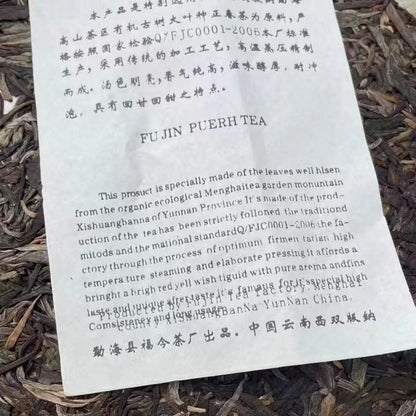 本产品是特别选
高山茶区有机古树大叶种正春茶为原料，严
格按照国家检验Q/FJC0001-2006本厂标准
生产，采用传统的加工工艺，高温蒸压精制
而成。汤色明亮，香气纯高，滋味醇厚，耐冲
泡，具有回甘回甜之特点。
FUJIN PUERH TEA
This prosuct is specially made of the leaves well hlsen
from the organic ecological Menghaitea garden monuntain
Xishuanghanna of Yunnan Province It's made of the prod-
uction of the tea has been strictly folloned the traditiond
mitoods and the mational standardQ/FJC0001-2006 the fa-
ctory through the process of optimum firmen tatian high
tempera ture steaming and elaborate pressing it affords a
bringht a brigh red yell wish tiguid with pure aroma andfins
laste and unique after taste it's famous for it's special high
Produced by FuJin Tea factory, Menghai
Comsistency and long usage.
County XiShuangBanNa YunNan China.
勐海县福今茶厂出品。中国云南西双版纳